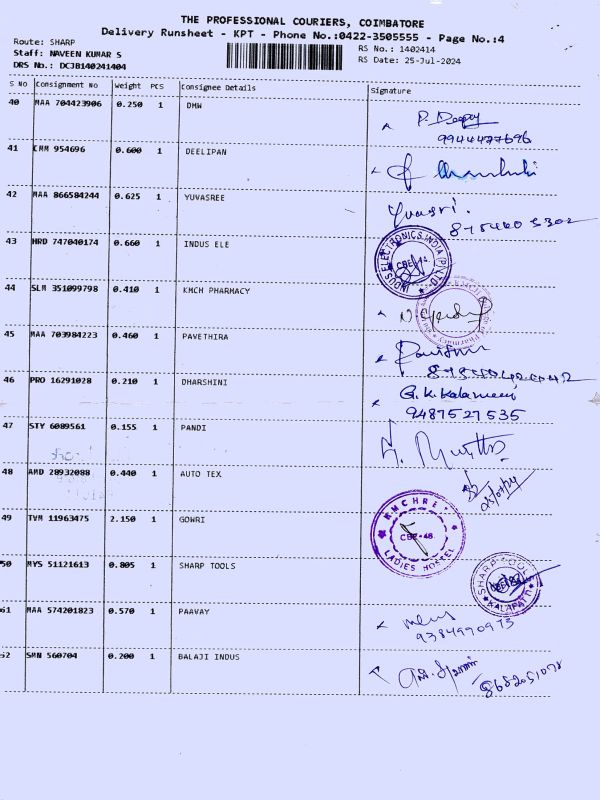 THE PROFESSIONAL COURIERS, COIMBATORE
Delivery Runsheet - KPT - Phone No.:0422-3505555 - Page No.:4
Route: SHARP
Staff: NAVEEN KUMAR S
DRS No.: DCJB140241404
RS No.: 1402414
RS Date: 25-Jul-2024
S NO Consignment No Weight PCS Consignee Details Signature
40 MAA 704423906 0.250 1 DMW
9944477696
41 CMM 954696 0.600 1 DEELIPAN
42 MAA 866584244 0.625 1 YUVASREE Yuvasri.
43 HRD 747040174 0.660 1 INDUS ELE
INDUS ELECTRONICS INDIA (P) LTD CBE-14
44 SLM 351099798 0.410 1 KMCH PHARMACY
45 MAA 703984223 0.460 1 PAVETHIRA
46 PRO 16291028 0.210 1 DHARSHINI
9487527535
47 STY 6089561 0.155 1 PANDI
48 AMD 28932088 0.440 1 AUTO TEX
25/07/24
49 TVM 11963475 2.150 1 GOWRI
CBE-48 LADIES HOSTEL
50 MYS 51121613 0.805 1 SHARP TOOLS
SHARP TOOLS
51 MAA 574201823 0.570 1 PAAVAY
9384970973
52 SMN 560704 0.200 1 BALAJI INDUS